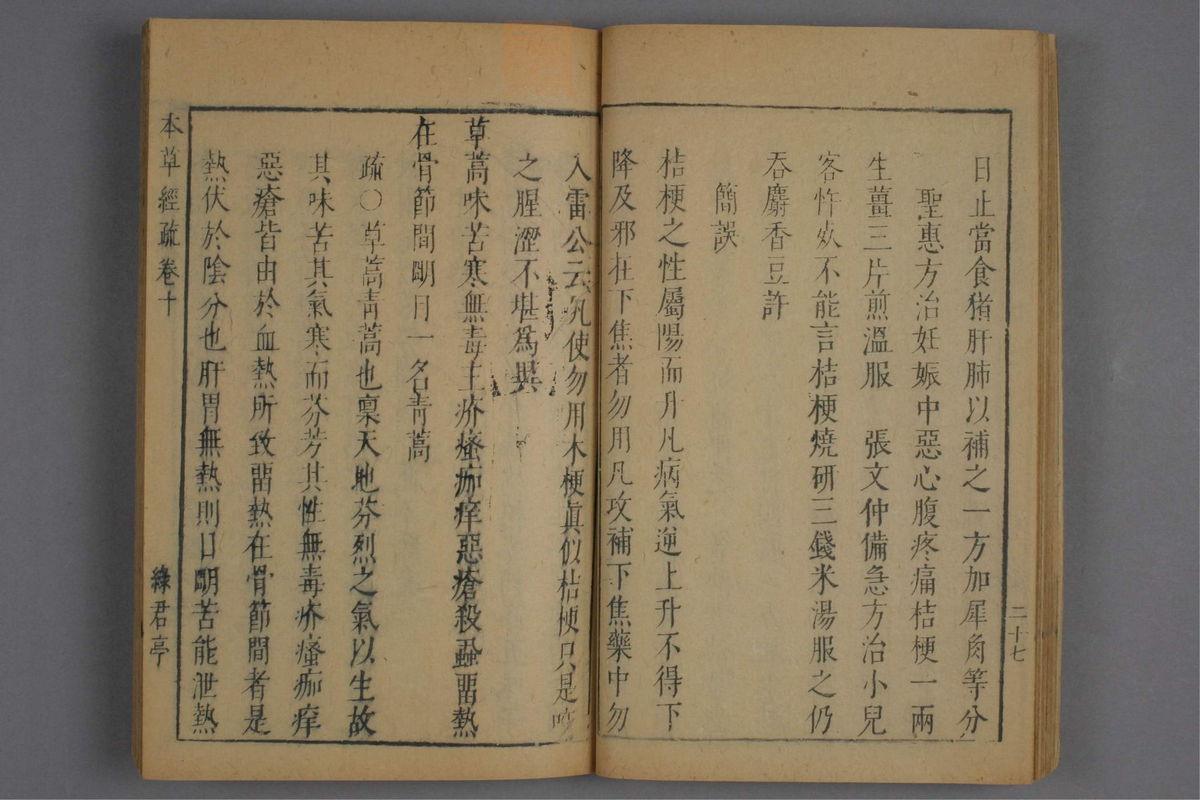 二十七
日止當食猪肝肺以補之一方加犀角等分
聖惠方治妊娠中惡心腹疼痛桔梗一兩
生薑三片煎溫服　張文仲備急方治小兒
客忤死不能言桔梗燒研三錢米湯服之仍
吞麝香豆許
簡誤
桔梗之性屬陽而升凡病氣逆上升不得下
降及邪在下焦者勿用凡攻補下焦藥中勿
入雷公云凡使勿用木梗眞似桔梗只是
之腥澀不堪爲異
草蒿味苦寒無毒主疥瘙痂痒惡瘡殺蝨畱熱
在骨節間明目一名靑蒿
疏○草蒿靑蒿也稟天地芬烈之氣以生故
其味苦其氣寒而芬芳其性無毒疥瘙痂痒
惡瘡皆由於血熱所致畱熱在骨節間者是
熱伏於陰分也肝胃無熱則目明苦能泄熱
本草經疏卷十
綠君亭